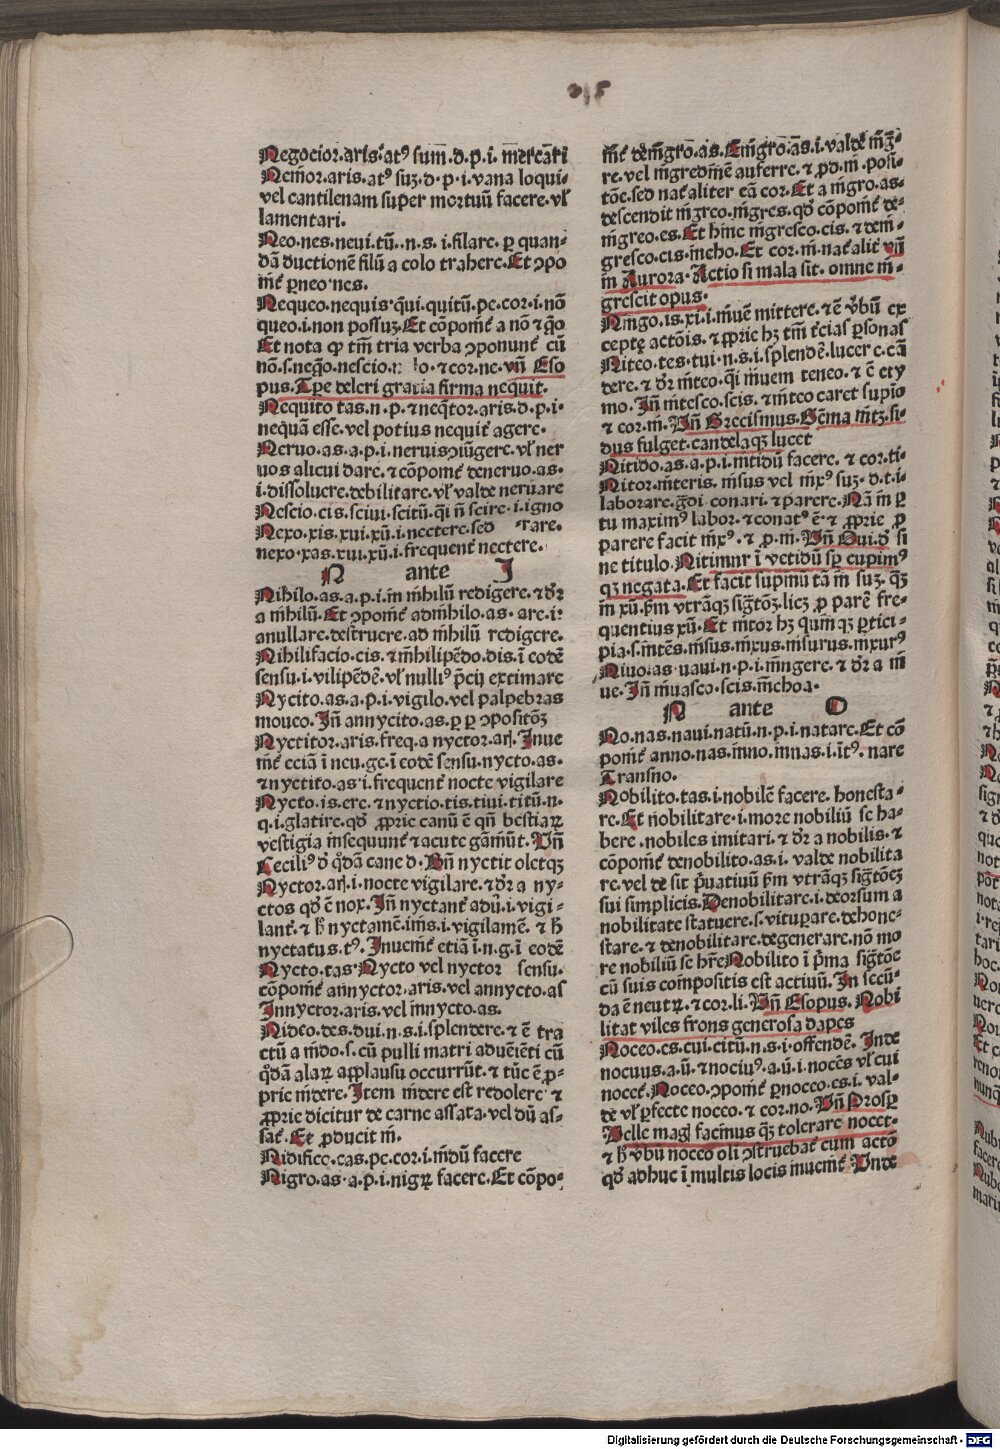 Negocior.aris.atꝰ sum̄.d.p.i. mercari
Nemor.aris.atꝰ suꝫ.d.p.i.vana loqui
vel cantilenam super mortuū facere.vl̓
lamentari.
Neo.nes.neui.tū..n.s.i.filare. ꝑ quan-
dā ductionē filū a colo trahere.Et ↄpo
nit̄ ꝑneo.nes.
Nequeo.nequis.q̄ui.quitū.pe.cor.i.nō
queo.i.non possuꝫ.Et cōponit̄ a nō ⁊ q̄o
Et nota ꝙ tm̄ tria verba ↄponunt̄ cū
nō.s.neq̄o.nescio. lo.⁊ cor.ne.vn̄ Eso
pus.Turpe deleri gratia firma nequit.
Nequito tas.n.p.⁊ neq̄tor.aris.d.p.i.
nequā esse.vel potius nequit̄ agere.
Neruo.as.a.p.i.neruis ↄiūgere.vl̓ ner
uos alicui dare.⁊ cōponit̄ deneruo.as.
i.dissoluere.debilitare.vl̓ valde neruare
Nescio.cis.sciui.scitū.qͥ n̄ scire.i.igno
Nexo.xis.xui.xū.i.nectere.sed rare.
nexo.xas.xui.xū.i.frequent̄ nectere.
N ante I
Nihilo.as.a.p.i.in nihilū redigere.⁊ dr̄
a nihilū.Et ↄponit̄ adnihilo.as.are.i:
anullare.destruere.ad nihilū redigere.
Nihilifacio.cis.⁊ nihilipēdo.dis.ī eodē
sensu.i.vilipēdē.vl̓ nulliꝰ p̄cij extimare
Nycito.as.a.p.i.vigilo.vel palpebras
moueo.In̄ annycito.as.ꝑ ꝑ ↄpositōꝫ
Nyctitor.aris.freq.a nyctor.arꝭ.Inue
nit̄ eciā ī neu.ge.ī eodē sensu.nycto.as.
⁊ nyctito.as.i.frequent̄ nocte vigilare
Nycto.is.ere.⁊ nyctio.tis.tiui.titū.n.
q.i.glatire.qđ ꝓprie canū ē qn̄ bestiaꝝ
vestigia insequunt̄ ⁊ acute gānniūt.Vn̄
Ceciliꝰ đ q̊dā cane đ.Bn̄ nyctit oletqꝫ
Nyctor.arꝭ.i.nocte vigilare.⁊ dr̄ a ny-
ctos qđ ē nox.In̄ nyctant̄ adū.i.vigi-
lant̄.⁊ h̄ nyctamē.inis.i.vigilamē.⁊ h̄
nyctatus.tꝰ.Inuenit̄ etiā i.n.g.ī eodē
Nycto.tas.Nycto vel nyctor sensu.
cōponit̄ annyctor.aris.vel annycto.as
Innyctor.aris.vel innycto.as.
Nideo.des.dui.n.s.i.splendere.⁊ ē tra
ctū a nido.s.cū pulli matri aduēiēti cū
q̊dā alaꝝ applausu occurrūt.⁊ tūc ē ꝓ-
prie nidere.Item nidere est redolere ⁊
ꝓprie dicitur de carne assata.vel dū as-
sat̄.Et ꝓducit ni.
Nidifico.cas.pe.cor.i.nidū facere
Nigro.as.a.p.i.nigꝝ facere.Et cōpo-
nit̄ denigro.as.Enigro.as.i.valde nigra
re.vel nigredinē auferre.⁊ ꝓđ.ni posi-
tōe.sed nat̄aliter eā cor.Et a nigro.as.
descendit nigreo.nigres.qđ cōponit̄ de-
nigreo.es.Et hinc nigresco.cis.⁊ deni-
gresco.cis.incho.Et cor.ni nat̄alit̄ vn̄
in Aurora.Actio si mala sit.omne ni-
grescit opus.
Ningo.is.xi.i.niuē mittere.⁊ ē v̄bū ex
cepte actōis.⁊ ꝓprie hꝫ tm̄ t̄cias ꝑsonas
Niteo.tes.tui.n.s.i.splendē.lucere.cā
dere.⁊ dr̄ niteo.qͥi niuem teneo.⁊ ē ety
mo.In̄ nitesco.scis.⁊ niteo caret supīo
⁊ cor.ni.Vn̄ Grecismus.Gēma nitꝫ.si-
dus fulget.candelaqꝫ lucet
Nitido.as.a.p.i.nitidū facere.⁊ cor.ti.
Nitor.niteris.nisus vel nixꝰ suꝫ.d.t.i.
laborare.gđi conari.⁊ parere.Nā ni ꝑ
tu maximꝰ labor.⁊ conatꝰ ē.⁊ ꝓprie ꝓ
parere facit nixꝰ.⁊ ꝓ.ni.Vn̄ Oui.đ si
ne titulo.Nitimur ī vetidū sꝑ cupimꝰ
qꝫ negata.Et facit supinū tā ni suꝫ.qꝫ
ni xū.ẜm vtrāqꝫ sigtōꝫ.licꝫ ꝓ parē fre-
quentius xū.Et nitor hꝫ quinqꝫ ꝑtici-
pia.s.nitēs.nisus.nixus.nisurus.nixurꝰ
Niuo.as.uaui.n.p.i.ningere.⁊ dr̄ a ni
ue.In̄ niuasco.scis.inchoa.
N ante O
No.nas.naui.natū.n.p.i.natare.Et cō
ponit̄ anno.nas.inno.innas.i.ītꝰ.nare
Transno.
Nobilito.tas.i.nobilē facere.honesta-
re.Et nobilitare.i.more nobiliū se ha-
bere.nobiles imitari.⁊ dr̄ a nobilis.⁊
cōponit̄ denobilito.as.i.valde nobilita
re.vel de sit p̄uatiuū ẜm vtrāqꝫ sigtōeꝫ
sui simplicis.Denobilitare.i.deorsum a
nobilitate statuere.s.vituꝑare.dehone-
stare.⁊ denobilitare.degenerare.nō mo
re nobiliū se hr̄e Nobilito ī p̄ma sigtōe
cū suis compositis est actiuū.In secū-
da ē neutꝝ.⁊ cor.li.Vn̄ Esopus.Nobi
litat viles frons generosa dapes
Noceo.es.cui.citū.n.s.i.offendē.Inde
nocuus.a.ū.⁊ nociuꝰ.a.ū.i.nocēs vl̓ cui
nocet̄.Noceo.ↄponit̄ ꝑnocco.es.i.val-
de vl̓ ꝑfecte nocco.⁊ cor.no.Vn̄ Prosꝑ
Velle magꝭ facinus qꝫ tolerare nocet.
⁊ h̄ v̄bū nocco oli ↄstruebat̄ cum actō
qđ adhuc ī multis locis inuenit̄ Vnde